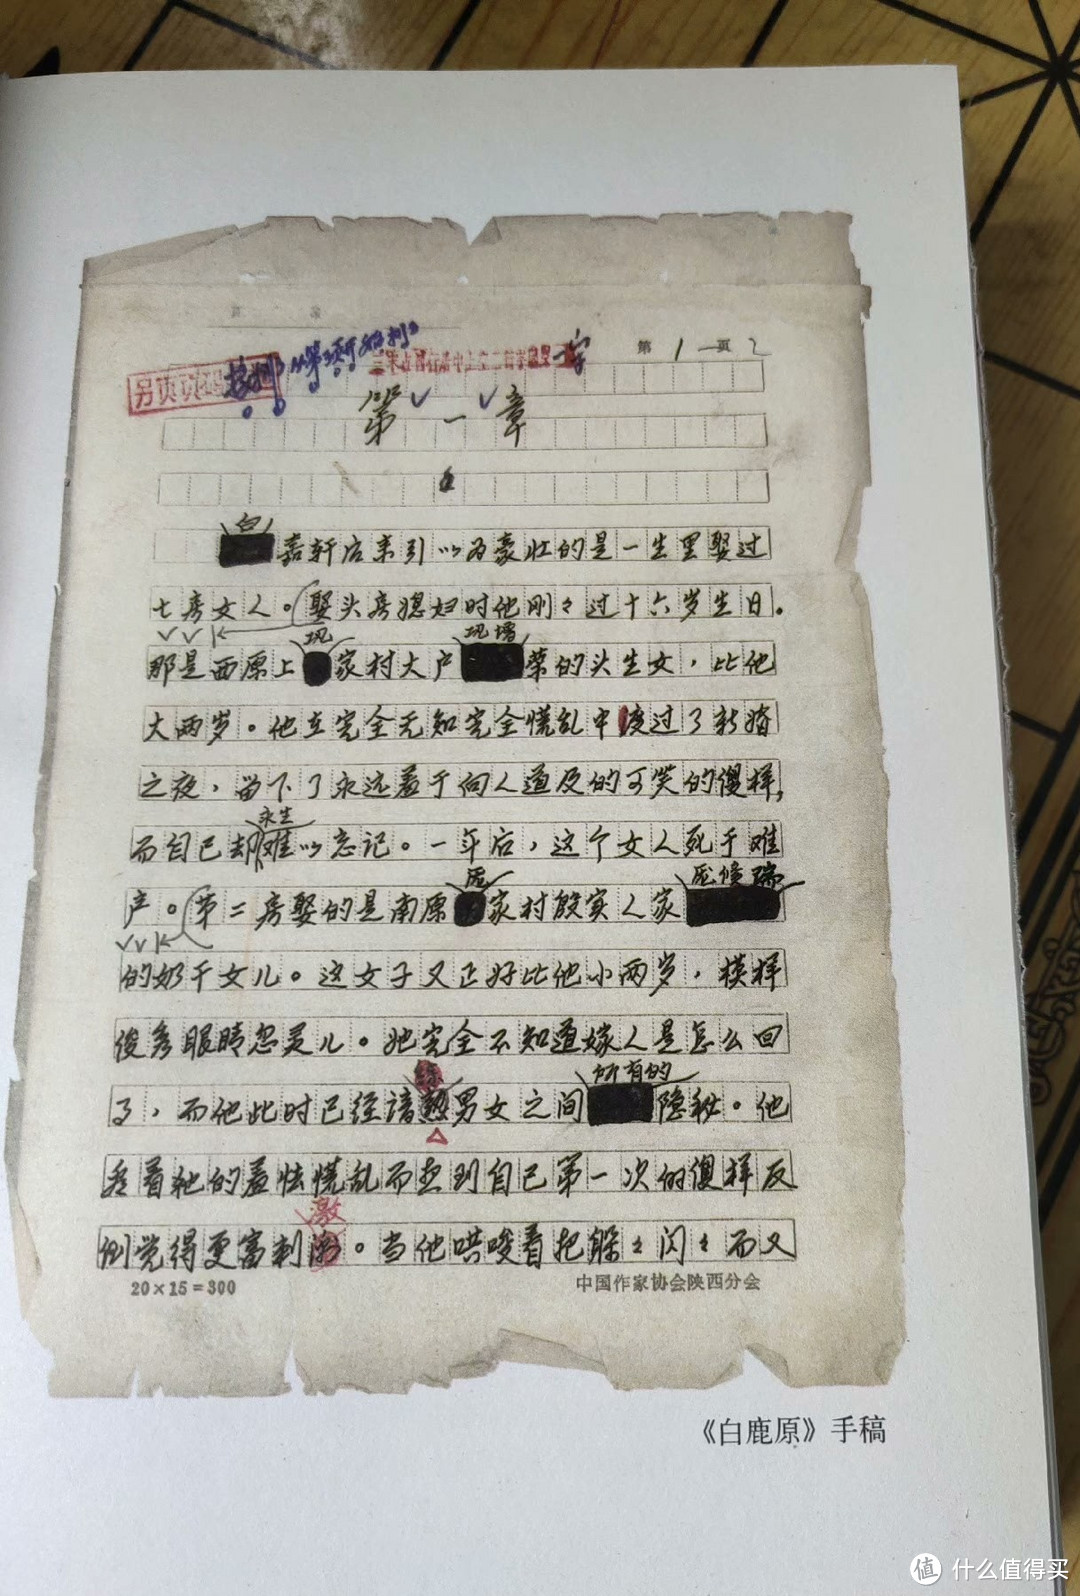 第 1 页 2
另页
第一章
白
嘉轩后来引以为豪壮的是一生里娶过
七房女人。娶头房媳妇时他刚々过十六岁生日。
巩 巩增
那是西原上家村大户荣的头生女，比他
大两岁。他在完全无知完全慌乱中度过了新婚
之夜，留下了永远羞于向人道及的可笑的傻样，
永生
而自己却难以忘记。一年后，这个女人死于难
庞 庞修瑞
产。第二房娶的是南原家村殷实人家
的奶干女儿。这女子又正好比他小两岁，模样
俊秀眼睛忽灵儿。她完全不知道嫁人是怎么回
练 所有的
事，而他此时已经谙熟男女之间隐秘。他
看着她的羞怯慌乱而想到自己第一次的傻样反
激
倒觉得更富刺激。当他哄唆着把躲々闪々而又
20×15=300
中国作家协会陕西分会
《白鹿原》手稿
值 什么值得买